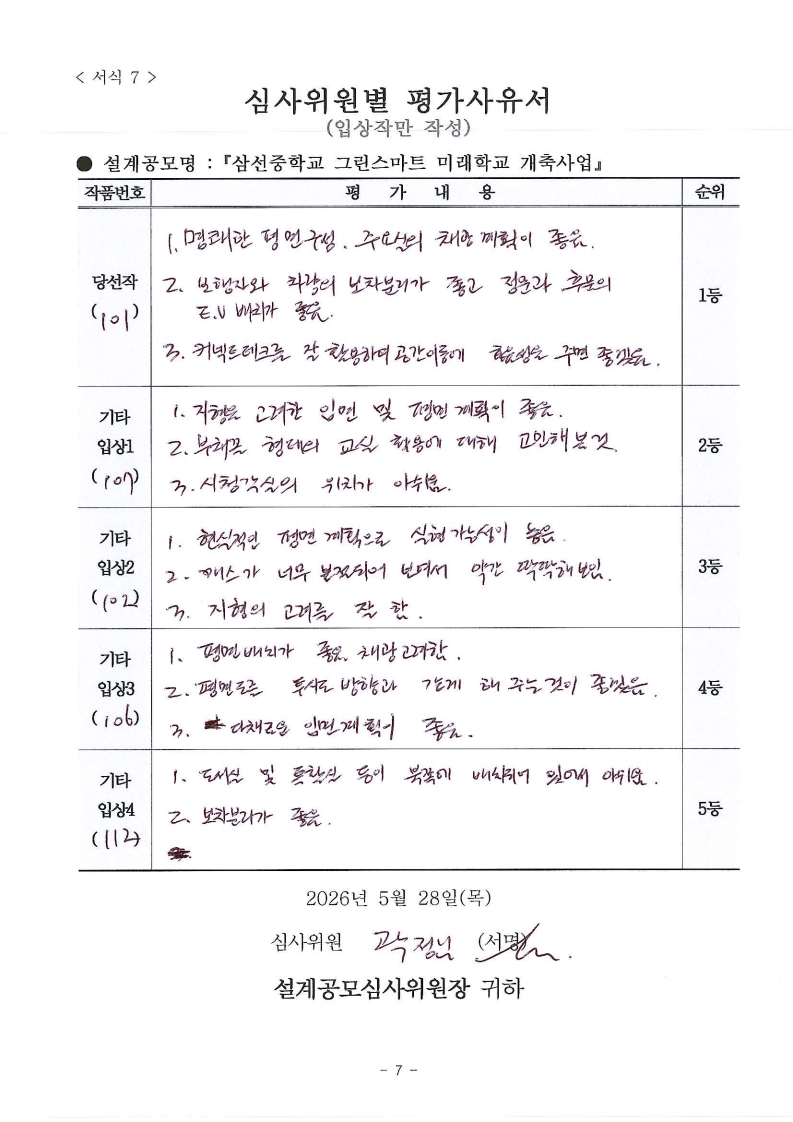 < 서식 7 >
심사위원별 평가사유서
(입상작만 작성)
● 설계공모명 : 『삼선중학교 그린스마트 미래학교 개축사업』
작품번호 평 가 내 용 순위
당선작
(101)
1. 명쾌한 평면구성. 주요실의 채광계획이 좋음.
2. 보행자와 차량의 보차분리가 좋고 정문과 후문의
E.V 배치가 좋음.
3. 커넥트데크를 잘 활용하며 공간이동에 주면 좋겠음.
1등
기타
입상1
(107)
1. 지형을 고려한 입면 및 평면계획이 좋음.
2. 부채꼴 형태의 교실 활용에 대해 고민해볼것.
3. 시청각실의 위치가 아쉬움.
2등
기타
입상2
(102)
1. 현실적인 평면계획으로 실현가능성이 높음.
2. 매스가 너무 분절되어 보여서 약간 딱딱해보임.
3. 지형의 고려를 잘 함.
3등
기타
입상3
(106)
1. 평면배치가 좋음. 채광고려함.
2. 평면도를 투시도 방향과 같게 해 주는것이 좋겠음.
3. 다채로운 입면계획이 좋음.
4등
기타
입상4
(112)
1. 도서실 및 특활실 등이 북쪽에 배치되어 있어서 아쉬움.
2. 보차분리가 좋음.
5등
2026년 5월 28일(목)
심사위원 곽정님 (서명)
설계공모심사위원장 귀하
- 7 -